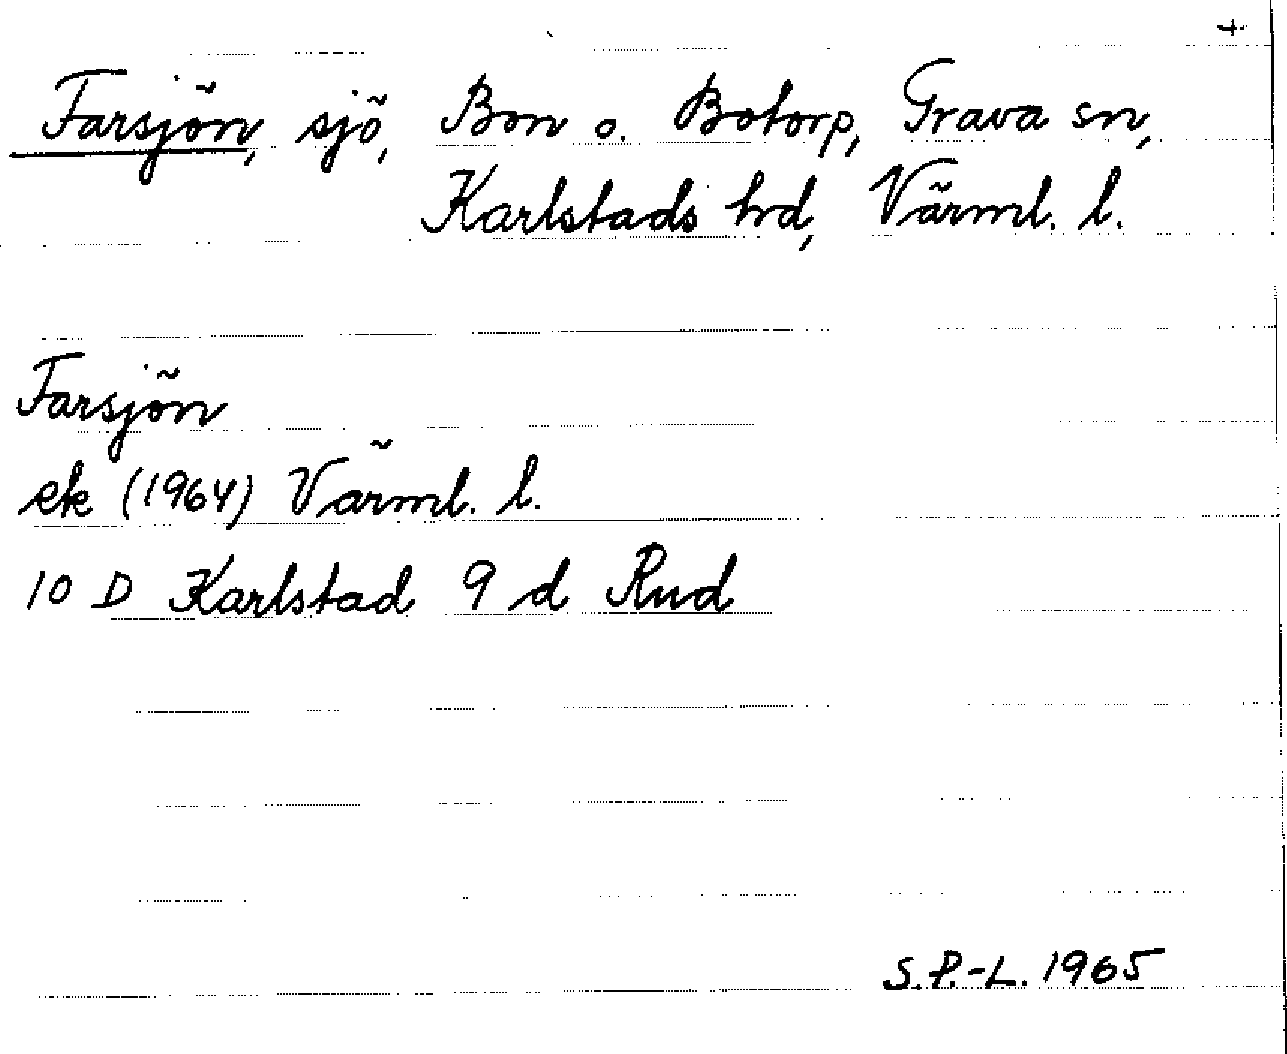 Farsjön, sjö, Bon o. Botorp, Grava sn,
Karlstads hd, Värml. l.
Farsjön
ek (1964) Värml. l.
10 D Karlstad 9 d Rud
S.P.-L. 1965